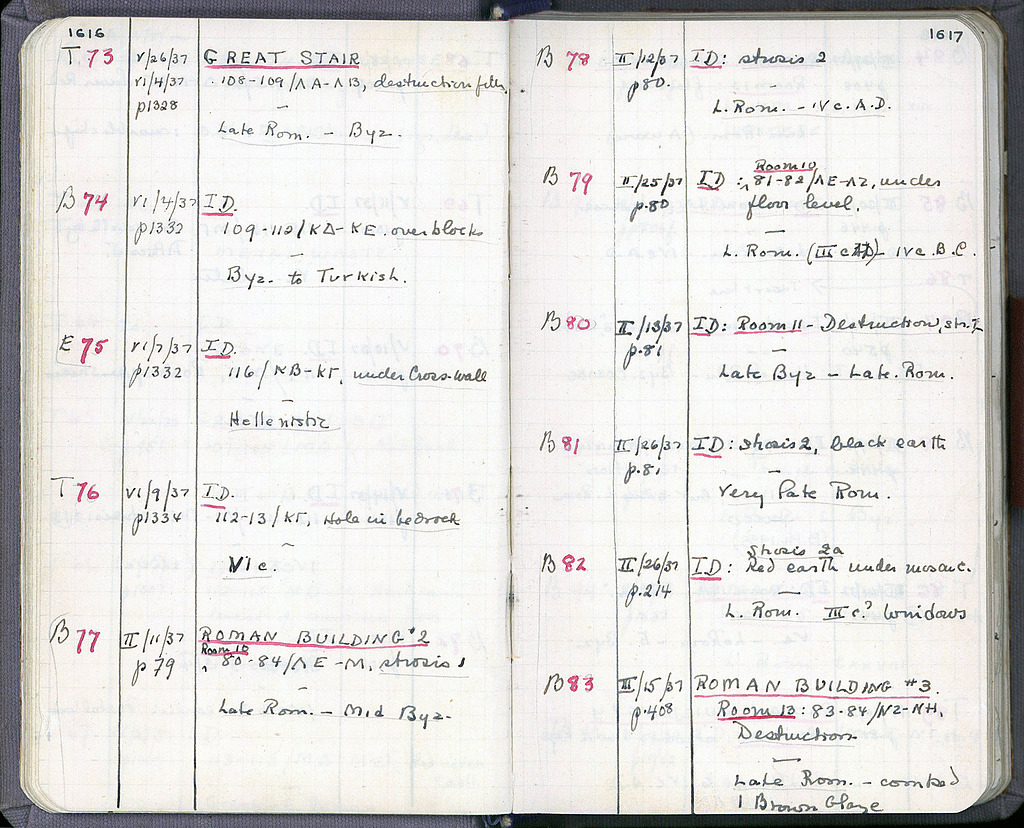 1616
T 73 V/26/37 GREAT STAIR
VI/4/37 108-109/ΛΑ-ΛΒ, destruction fill,
p1328 —
Late Rom. – Byz.
B 74 VI/4/37 ID.
p1332 109-112/ΚΔ-ΚΕ. over blocks
—
Byz. to Turkish.
E 75 VI/7/37 ID.
p1332 116/ΚΒ-ΚΓ, under Cross-wall
—
Hellenistic
T 76 VI/9/37 ID.
p1334 112-13/ΚΓ, Hole in bedrock
—
VI c.
B 77 II/11/37 ROMAN BUILDING #2
Room 10
p 79 80-84/ΛΕ-Μ, strosis 1
—
Late Rom. – Mid Byz.
1617
B 78 II/12/37 ID: strosis 2
p80. —
L. Rom. – IV c. A.D.
Room 10
B 79 II/25/37 ID: 81-82/ΛΕ-ΛΖ, under
p.80 floor level.
—
L. Rom. (III c AD) – IV c. B.C.
B 80 II/13/37 ID: Room 11 – Destruction, str. 2
p.81 —
Late Byz – Late Rom.
B 81 II/26/37 ID: strosis 2, black earth
p.81 —
Very late Rom.
Strosis 2a
B 82 II/26/37 ID: Red earth under mosaic.
p.214 —
L. Rom. III c? Windows
B 83 III/15/37 ROMAN BUILDING #3.
p.408 Room 13: 83-84/ΝΖ-ΝΗ,
Destruction
—
Late Rom. – combed
1 Brown Glaze